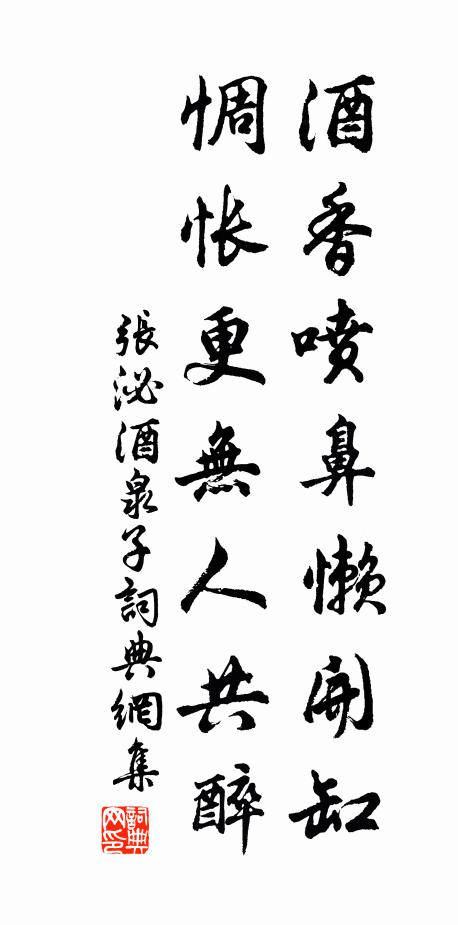 酒香喷鼻懒开缸
惆怅更無人共醉
張泌酒泉子詞典網集
詞典网印